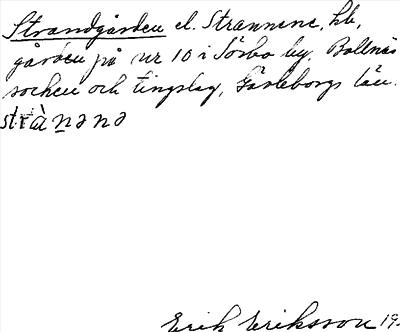 Strandgården el. Strannene, hb,
gården på nr 10 i Sörbo by, Bollnäs
socken och tingslag, Gävleborgs län.
strànənə
Erik Eriksson 19